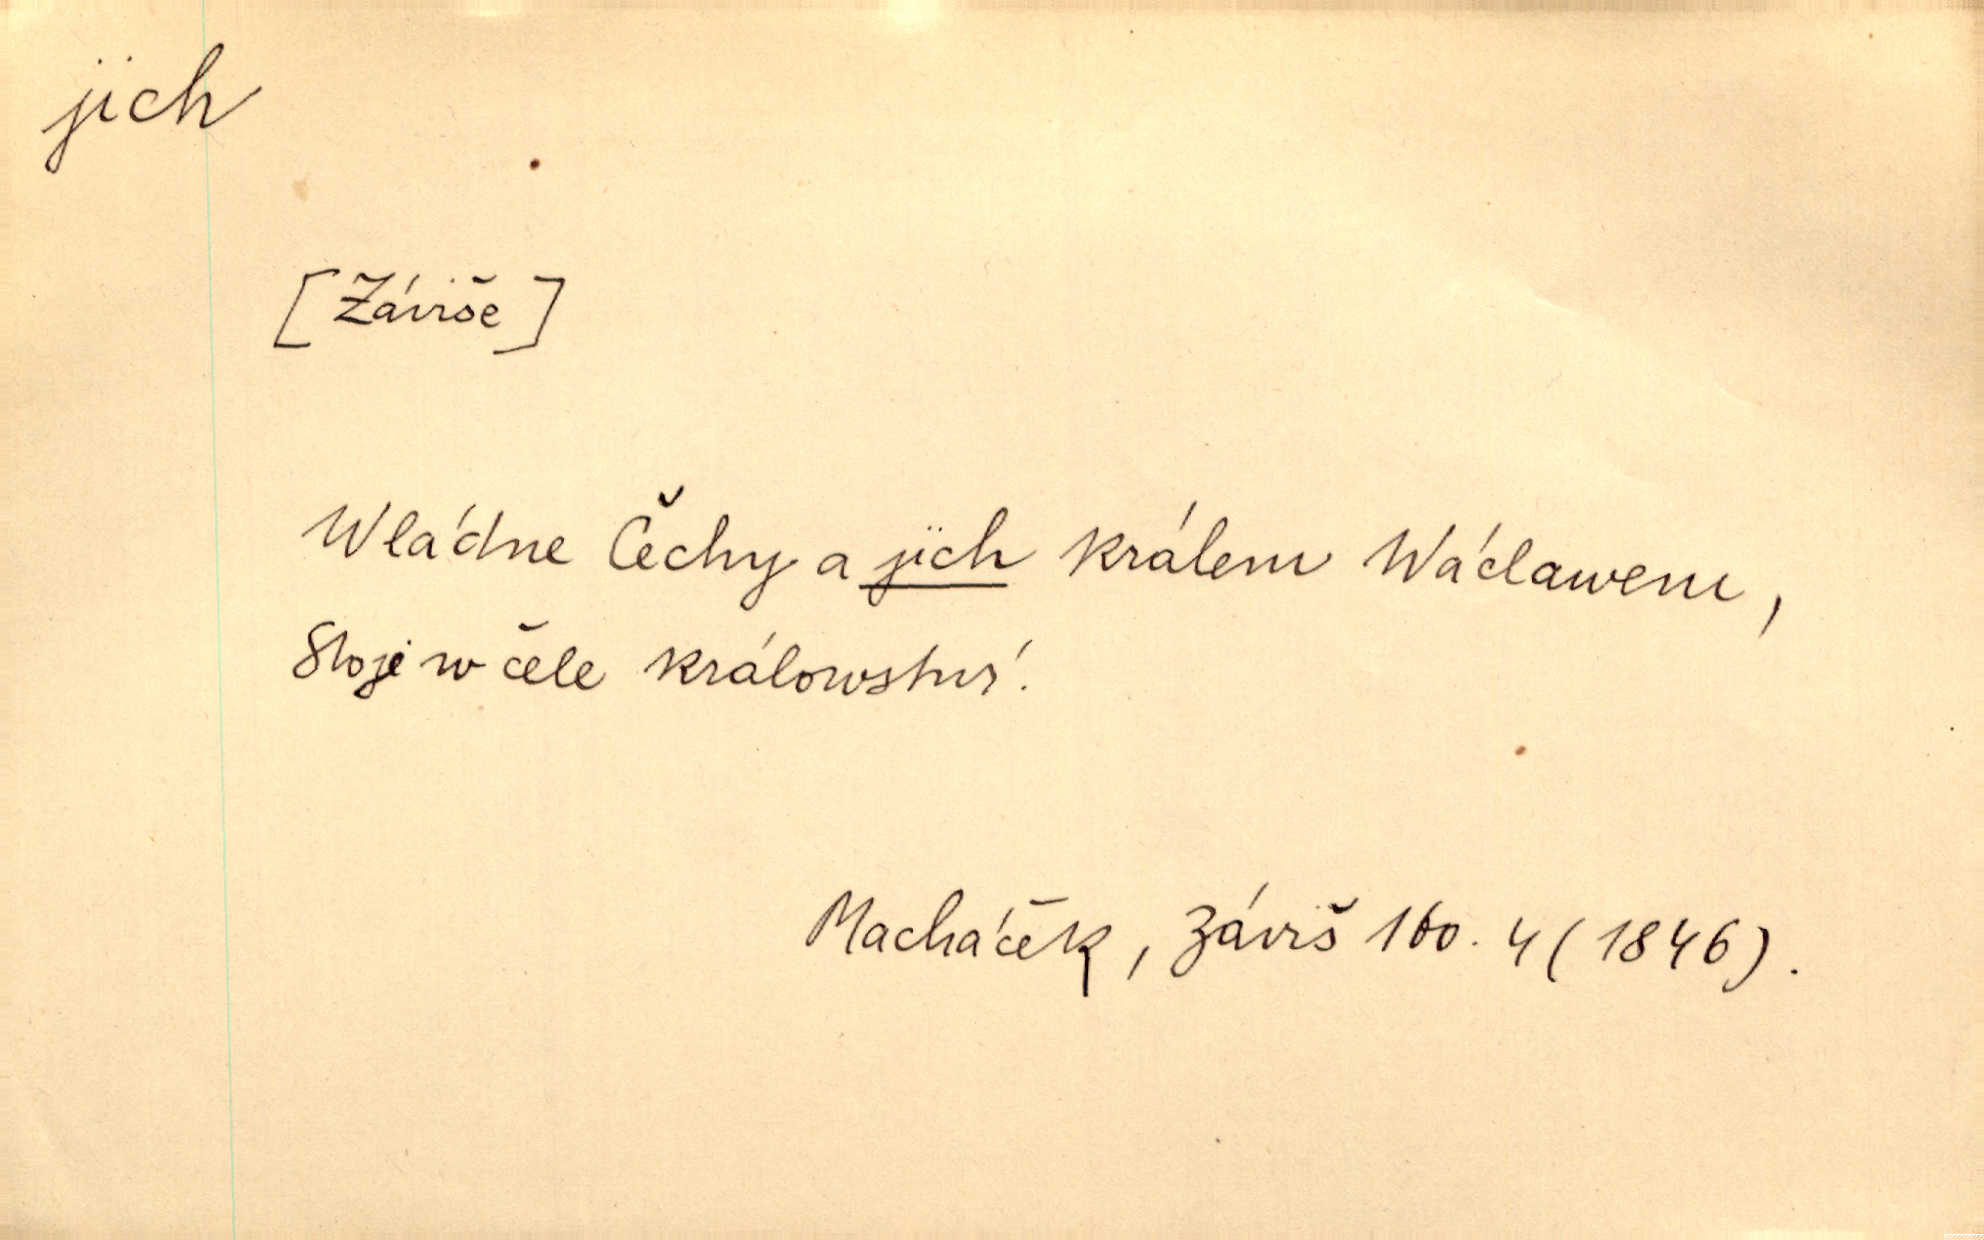 jich
[Záviše]
Wládne Čechy a jich králem Wáclawem,
Stoje w čele králowstwí.
Macháček, Záviš 160. 4 (1846).